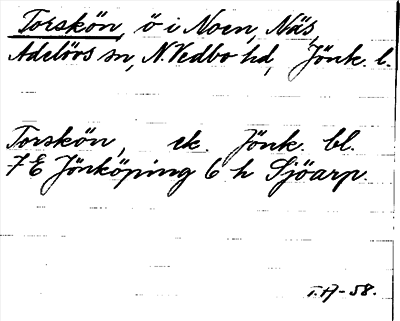 Torskön, ö i Noen, Näs,
Adelövs sn, N.Vedbo hd, Jönk. l.
Torskön, ek. Jönk. bl.
7E Jönköping 6 h Sjöarp.
T.H-58.